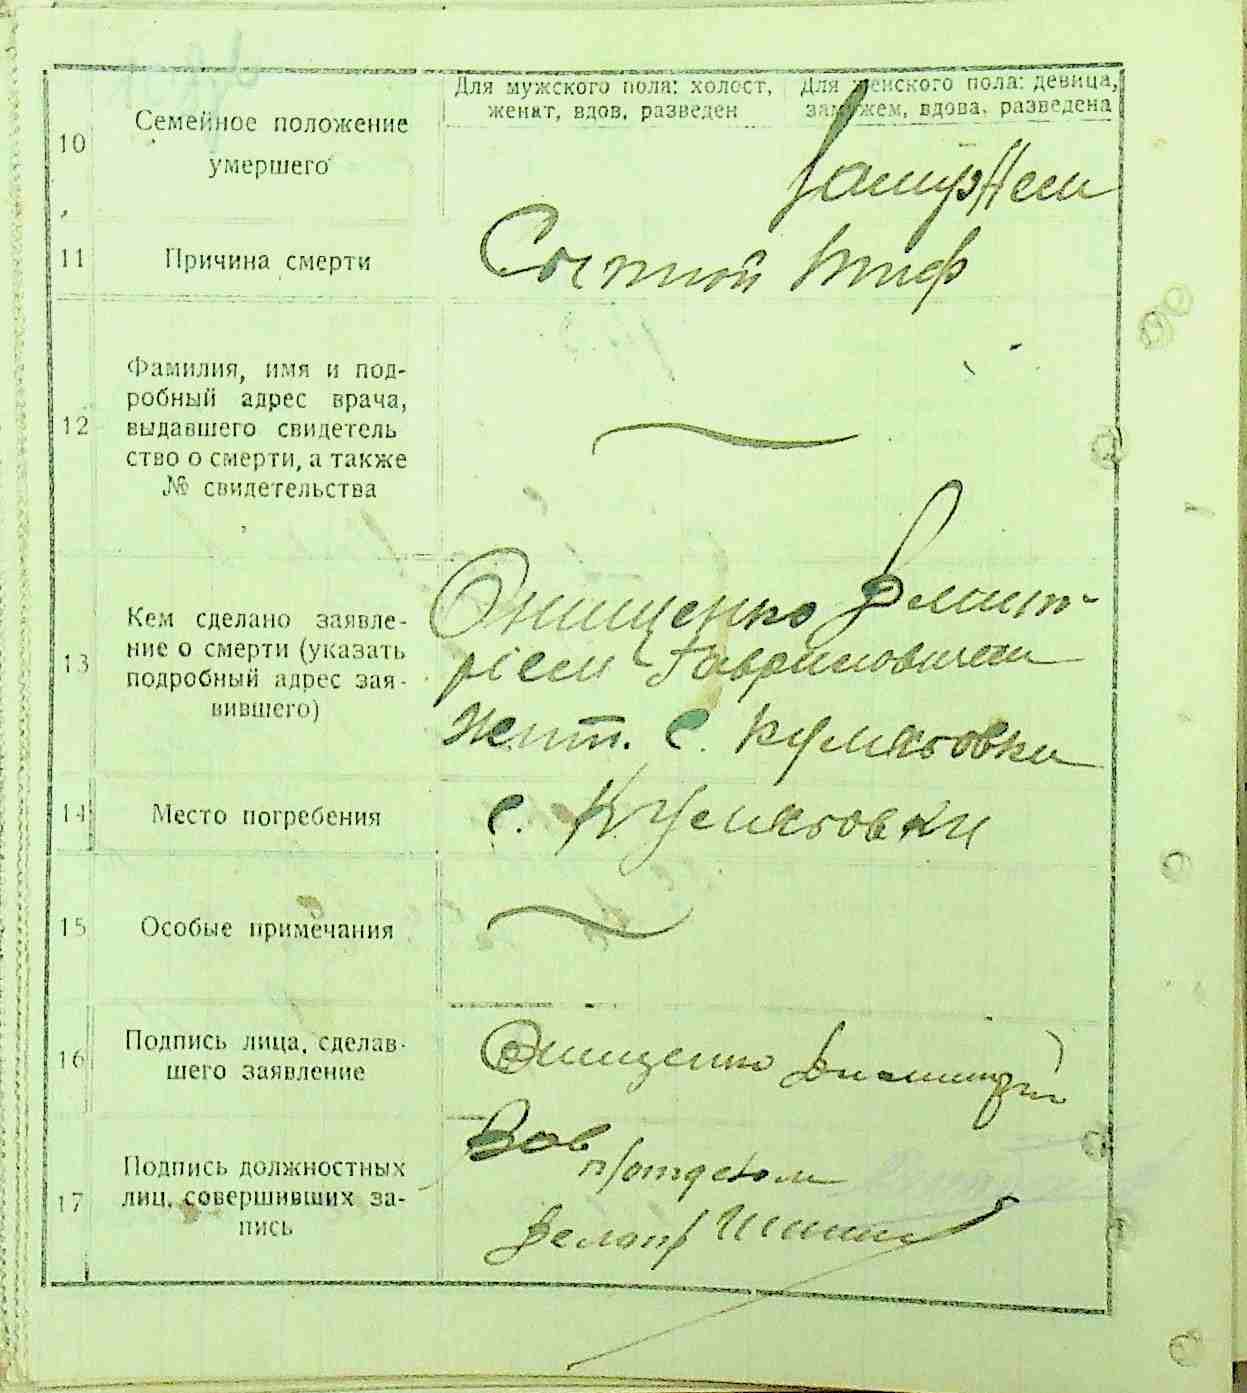 10
Семейное положение
умершего
Для мужского пола: холост,
женат, вдов, разведен
Для женского пола: девица,
замужем, вдова, разведена
Замужем
11
Причина смерти
Сыпной тиф
12
Фамилия, имя и под-
робный адрес врача,
выдавшего свидетель
ство о смерти, а также
№ свидетельства
13
Кем сделано заявле-
ние о смерти (указать
подробный адрес зая-
вившего)
Онищенко Дмит-
рієм Гавриловичем
жит. с.
14
Место погребения
с.
15
Особые примечания
16
Подпись лица, сделав-
шего заявление
Онищенко
17
Подпись должностных
лиц, совершивших за-
пись
Зав
п/отделом
Делопр